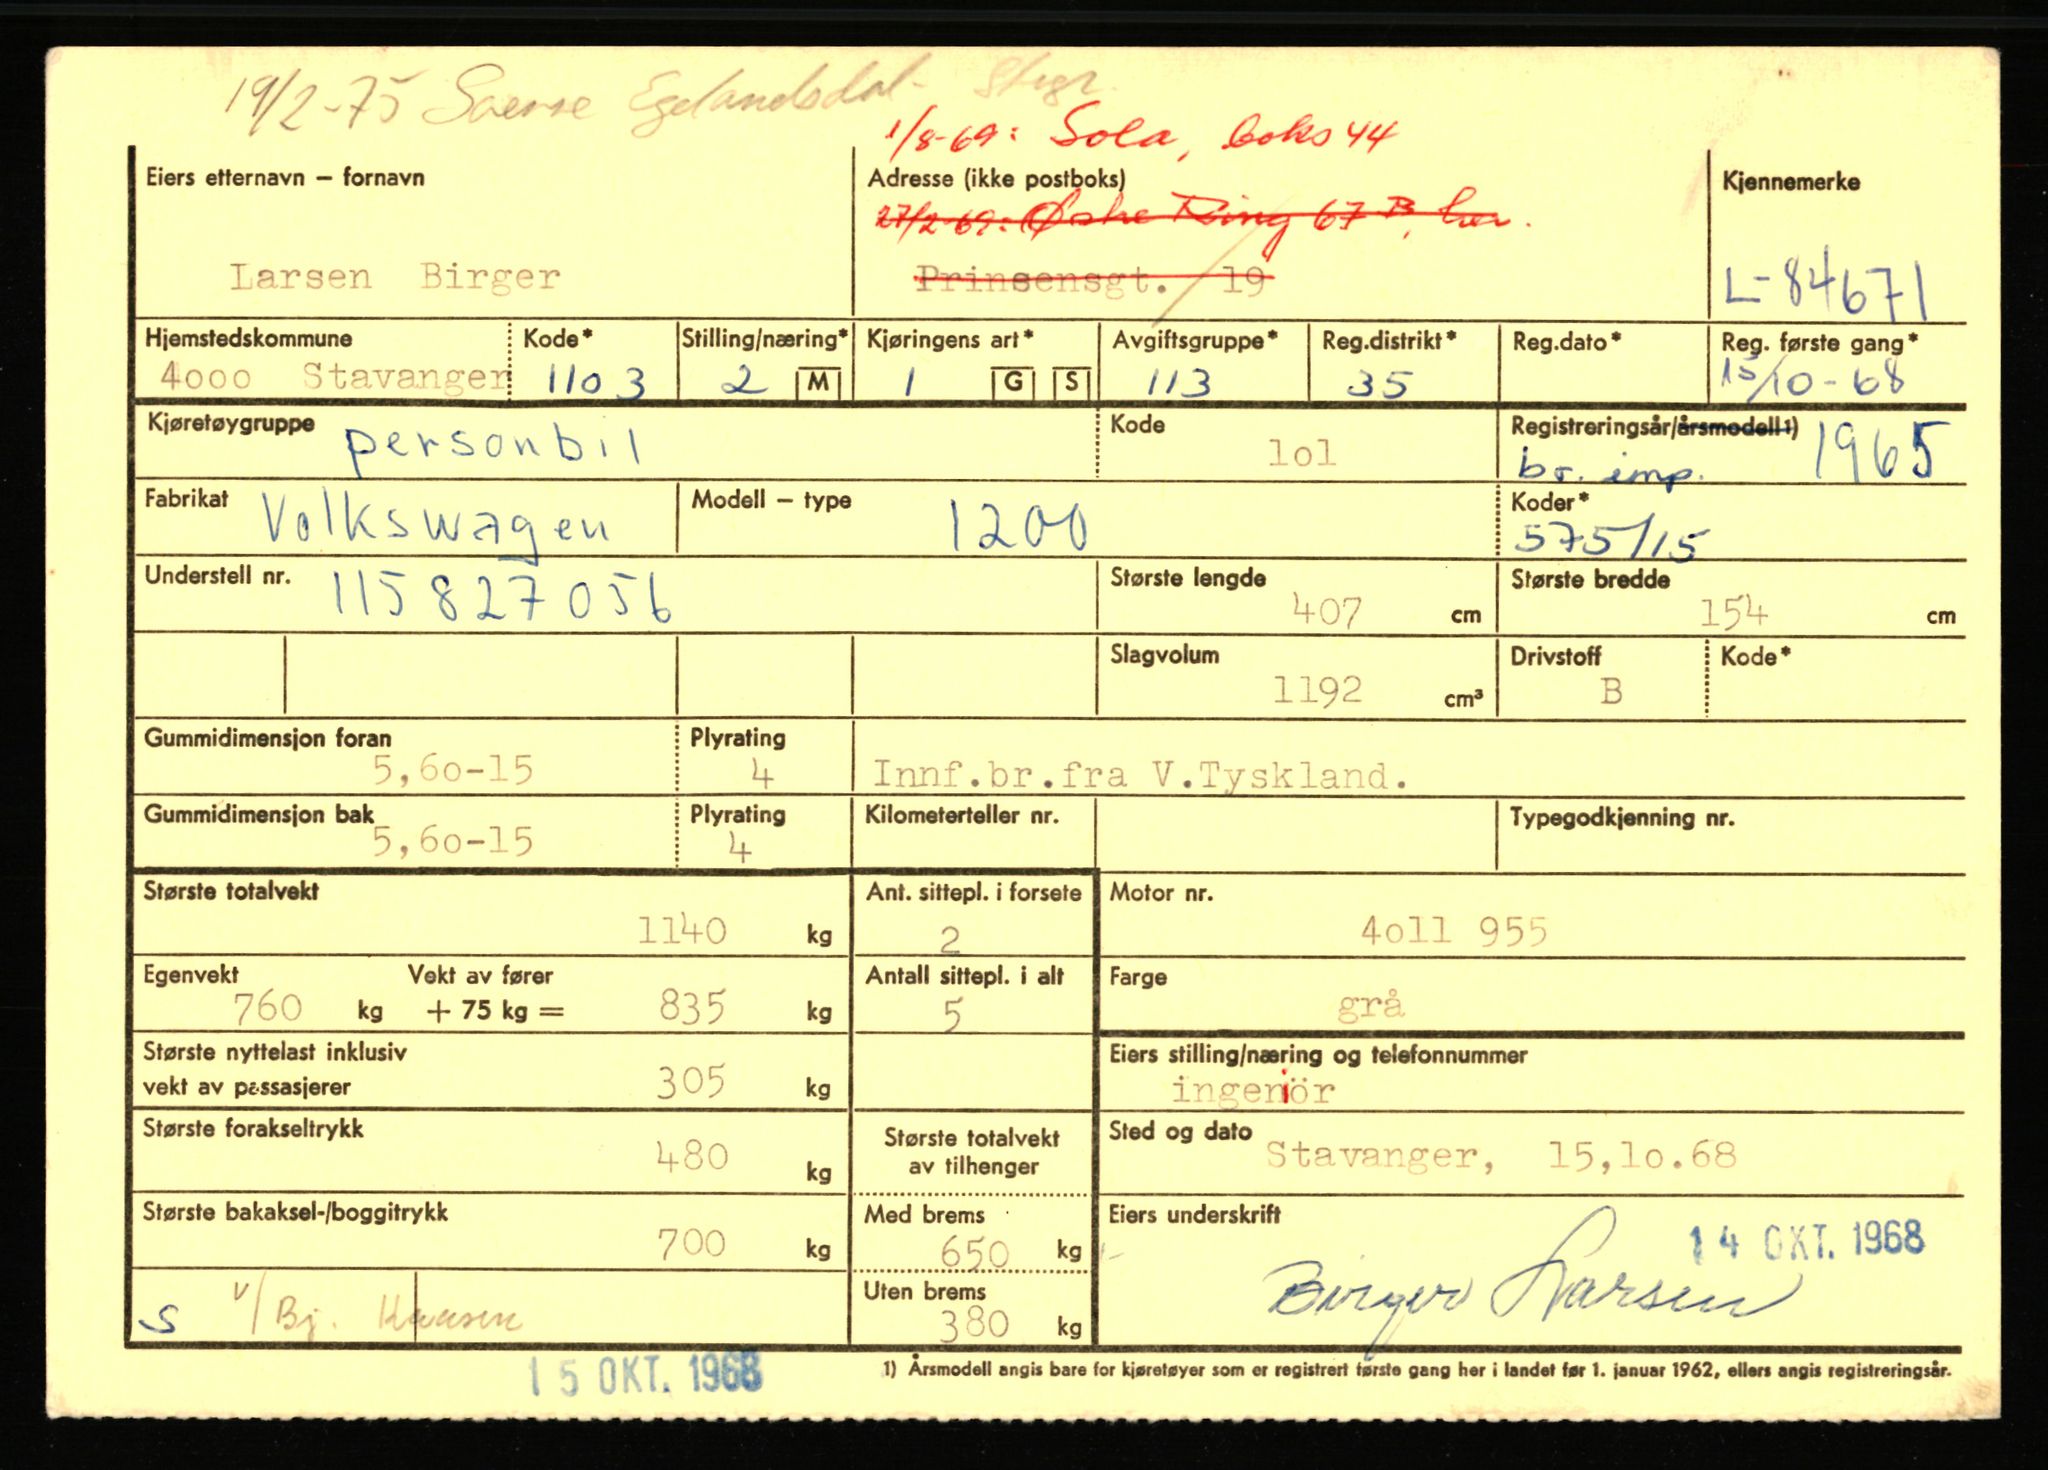 19/2-75 Sverre Egelandsdal - Stvgr.
1/8-69: Sola, boks 44
Eiers etternavn – fornavn
Adresse (ikke postboks)
Kjennemerke
27/2-69: Østre Ring 67 B, her.
Larsen Birger
Prinsensgt. 19
L-84671
Hjemstedskommune Kode* Stilling/næring* Kjøringens art* Avgiftsgruppe* Reg.distrikt* Reg.dato* Reg. første gang*
4000 Stavanger 1103 2 M 1 G S 113 35 15/10-68
Kjøretøygruppe personbil Kode 101 Registreringsår/årsmodell 1) 1965
br. imp.
Fabrikat Volkswagen Modell – type 1200 Koder*
575/15
Understell nr. 115827056 Største lengde Største bredde
407 cm 154 cm
Slagvolum Drivstoff Kode*
1192 cm³ B
Gummidimensjon foran Plyrating
5,60-15 4 Innf.br.fra V.Tyskland.
Gummidimensjon bak Plyrating Kilometerteller nr. Typegodkjenning nr.
5,60-15 4
Største totalvekt Ant. sittepl. i forsete Motor nr.
1140 kg 2 4011 955
Egenvekt Vekt av fører Antall sittepl. i alt Farge
760 kg + 75 kg = 835 kg 5 grå
Største nyttelast inklusiv Eiers stilling/næring og telefonnummer
vekt av passasjerer 305 kg ingeniör
Største forakseltrykk Største totalvekt Sted og dato
480 kg av tilhenger Stavanger, 15,10.68
Største bakaksel-/boggitrykk Med brems Eiers underskrift
700 kg 650 kg 14 OKT. 1968
Uten brems Birger Larsen
S v/Bj. 380 kg
15 OKT. 1968
1) Årsmodell angis bare for kjøretøyer som er registrert første gang her i landet før 1. januar 1962, ellers angis registreringsår.